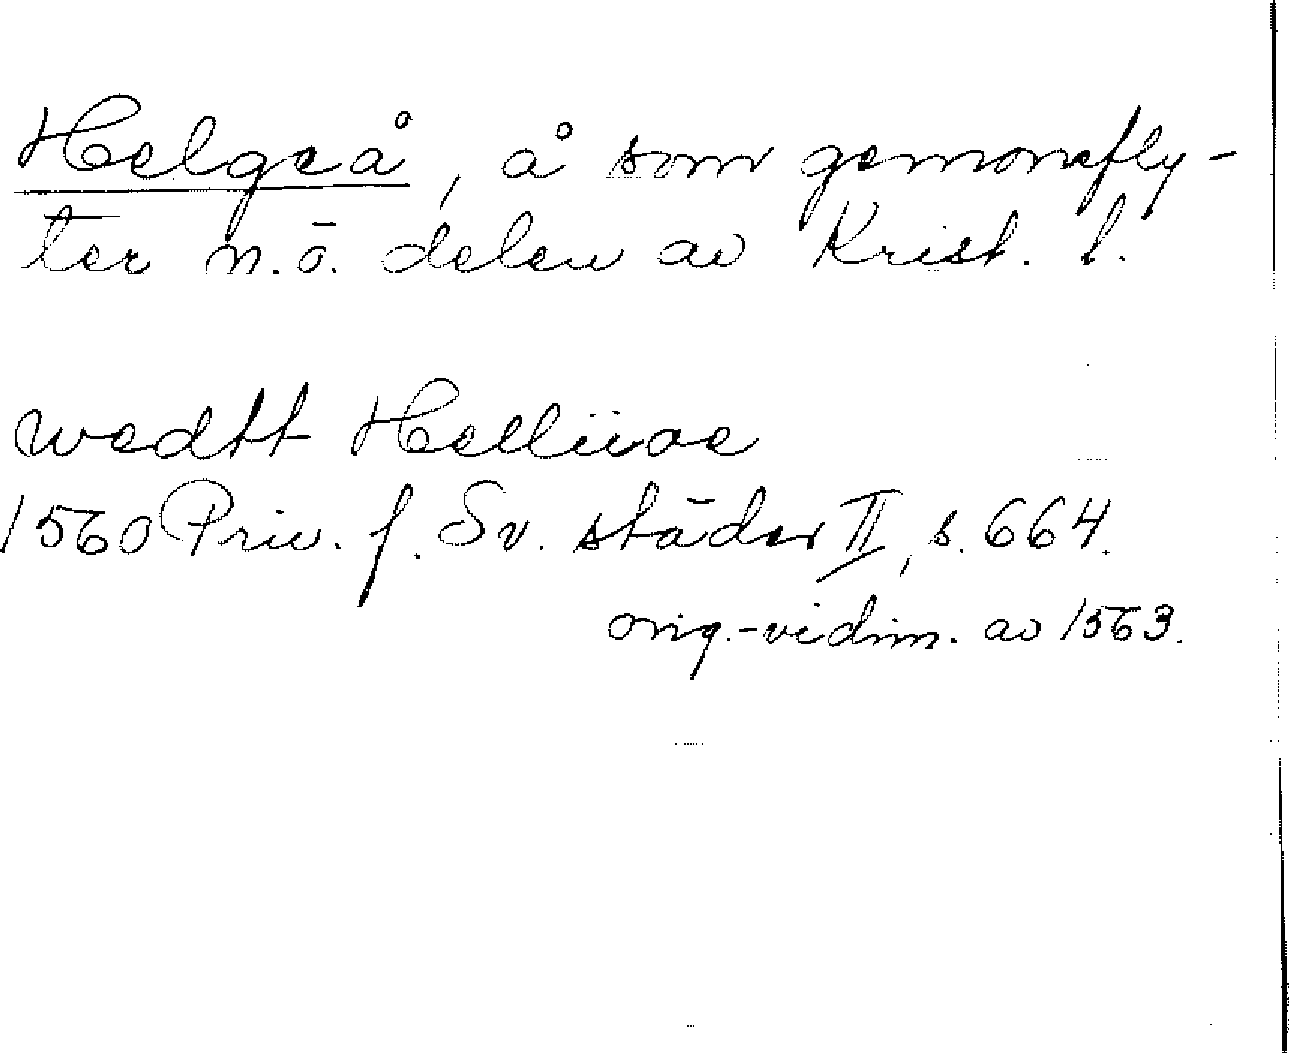 Helgeå, å som genomfly-
ter n.ö. delen av Krist. l.
wedtt Helliiaae
1560 Priv. f. Sv. städer II, s. 664.
orig.-vidim. av 1563.